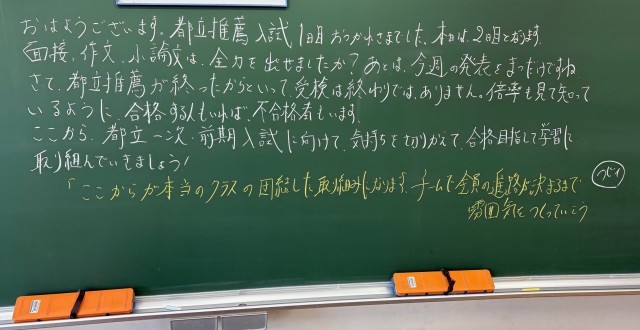 おはようございます。都立推薦入試1日目おつかれさまでした。本日は2日目となります。
面接、作文、小論文は、全力を出せましたか？あとは、今週の発表をまつだけですね
さて、都立推薦が終ったからといって、受検は終わりでは、ありません。倍率も見て知って
いるように、合格する人もいれば、不合格者もいます。
ここから、都立一次・前期入試に向けて、気持ちを切りかえて、合格目指して学習に
取り組んでいきましょう！
「ここからが本当のクラスの団結した取り組みになります。チームで全員の進路が決まるまで
雰囲気をつくっていこう